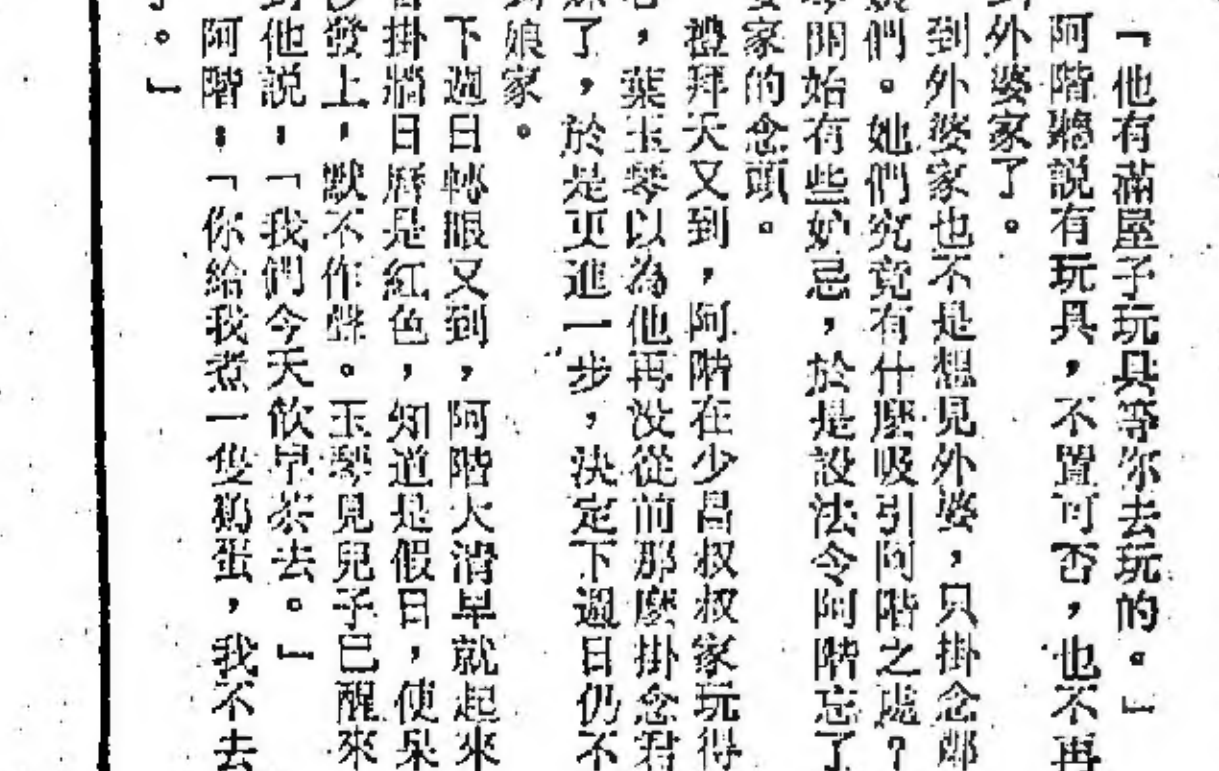 「他有滿屋子玩具等你去玩的。」
阿階聽説有玩具，不置可否，也不再
到外婆家了。
到外婆家也不是想見外婆，只掛念鄰
們。她們究竟有什麼吸引阿階之處？
琴開始有些妒忌，於是設法令阿階忘了
婆家的念頭。
禮拜天又到，阿階在少昌叔叔家玩得
，葉玉琴以為他再沒從前那麼掛念君
了，於是更進一步，決定下週日仍不
到娘家。
下週日轉眼又到，阿階大清早就起來
掛牆日曆是紅色，知道是假日，便呆
沙發上，默不作聲。玉琴見兒子已醒來
對他説：「我們今天飲早茶去。」
阿階：「你給我煮一隻鷄蛋，我不去
。」